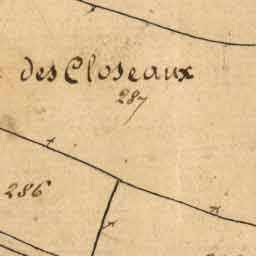 des Closeaux
287
286